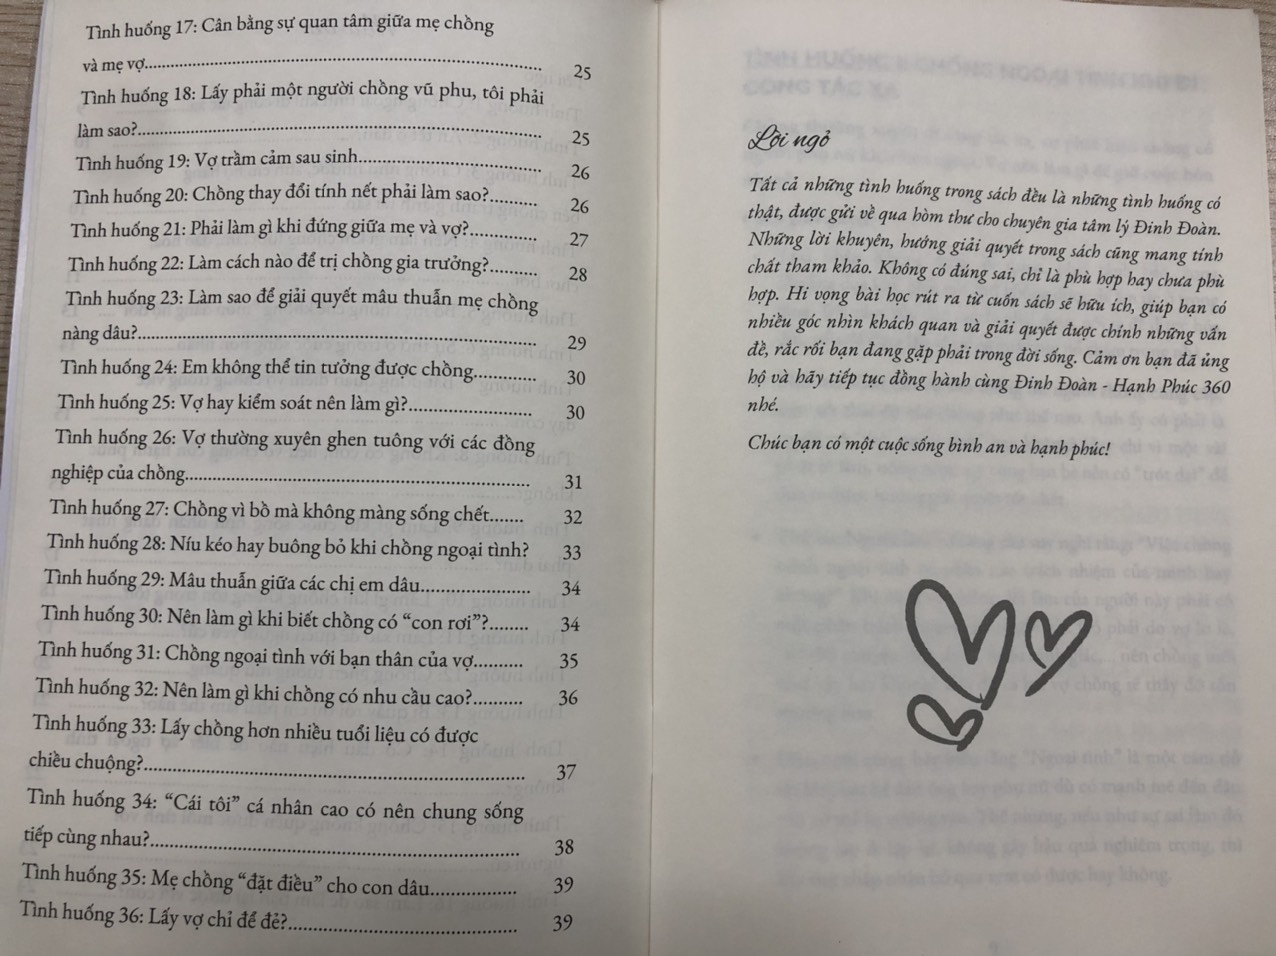 Tình huống 17: Cân bằng sự quan tâm giữa mẹ chồng
và mẹ vợ.......................................................................... 25
Tình huống 18: Lấy phải một người chồng vũ phu, tôi phải
làm sao?........................................................................... 25
Tình huống 19: Vợ trầm cảm sau sinh................................. 26
Tình huống 20: Chồng thay đổi tính nết phải làm sao?......... 26
Tình huống 21: Phải làm gì khi đứng giữa mẹ và vợ?............ 27
Tình huống 22: Làm cách nào để trị chồng gia trưởng?......... 28
Tình huống 23: Làm sao để giải quyết mâu thuẫn mẹ chồng
nàng dâu?......................................................................... 29
Tình huống 24: Em không thể tin tưởng được chồng............ 30
Tình huống 25: Vợ hay kiểm soát nên làm gì?...................... 30
Tình huống 26: Vợ thường xuyên ghen tuông với các đồng
nghiệp của chồng.............................................................. 31
Tình huống 27: Chồng vì bồ mà không màng sống chết....... 32
Tình huống 28: Níu kéo hay buông bỏ khi chồng ngoại tình? 33
Tình huống 29: Mâu thuẫn giữa các chị em dâu.................... 34
Tình huống 30: Nên làm gì khi biết chồng có “con rơi”?........ 34
Tình huống 31: Chồng ngoại tình với bạn thân của vợ.......... 35
Tình huống 32: Nên làm gì khi chồng có nhu cầu cao?.......... 36
Tình huống 33: Lấy chồng hơn nhiều tuổi liệu có được
chiều chuộng?................................................................... 37
Tình huống 34: “Cái tôi” cá nhân cao có nên chung sống
tiếp cùng nhau?................................................................. 38
Tình huống 35: Mẹ chồng “đặt điều” cho con dâu................. 39
Tình huống 36: Lấy vợ chỉ để đẻ?......................................... 39
Lời ngỏ
Tất cả những tình huống trong sách đều là những tình huống có
thật, được gửi về qua hòm thư cho chuyên gia tâm lý Đinh Đoàn.
Những lời khuyên, hướng giải quyết trong sách cũng mang tính
chất tham khảo. Không có đúng sai, chỉ là phù hợp hay chưa phù
hợp. Hi vọng bài học rút ra từ cuốn sách sẽ hữu ích, giúp bạn có
nhiều góc nhìn khách quan và giải quyết được chính những vấn
đề, rắc rối bạn đang gặp phải trong đời sống. Cảm ơn bạn đã ủng
hộ và hãy tiếp tục đồng hành cùng Đinh Đoàn - Hạnh Phúc 360
nhé.
Chúc bạn có một cuộc sống bình an và hạnh phúc!